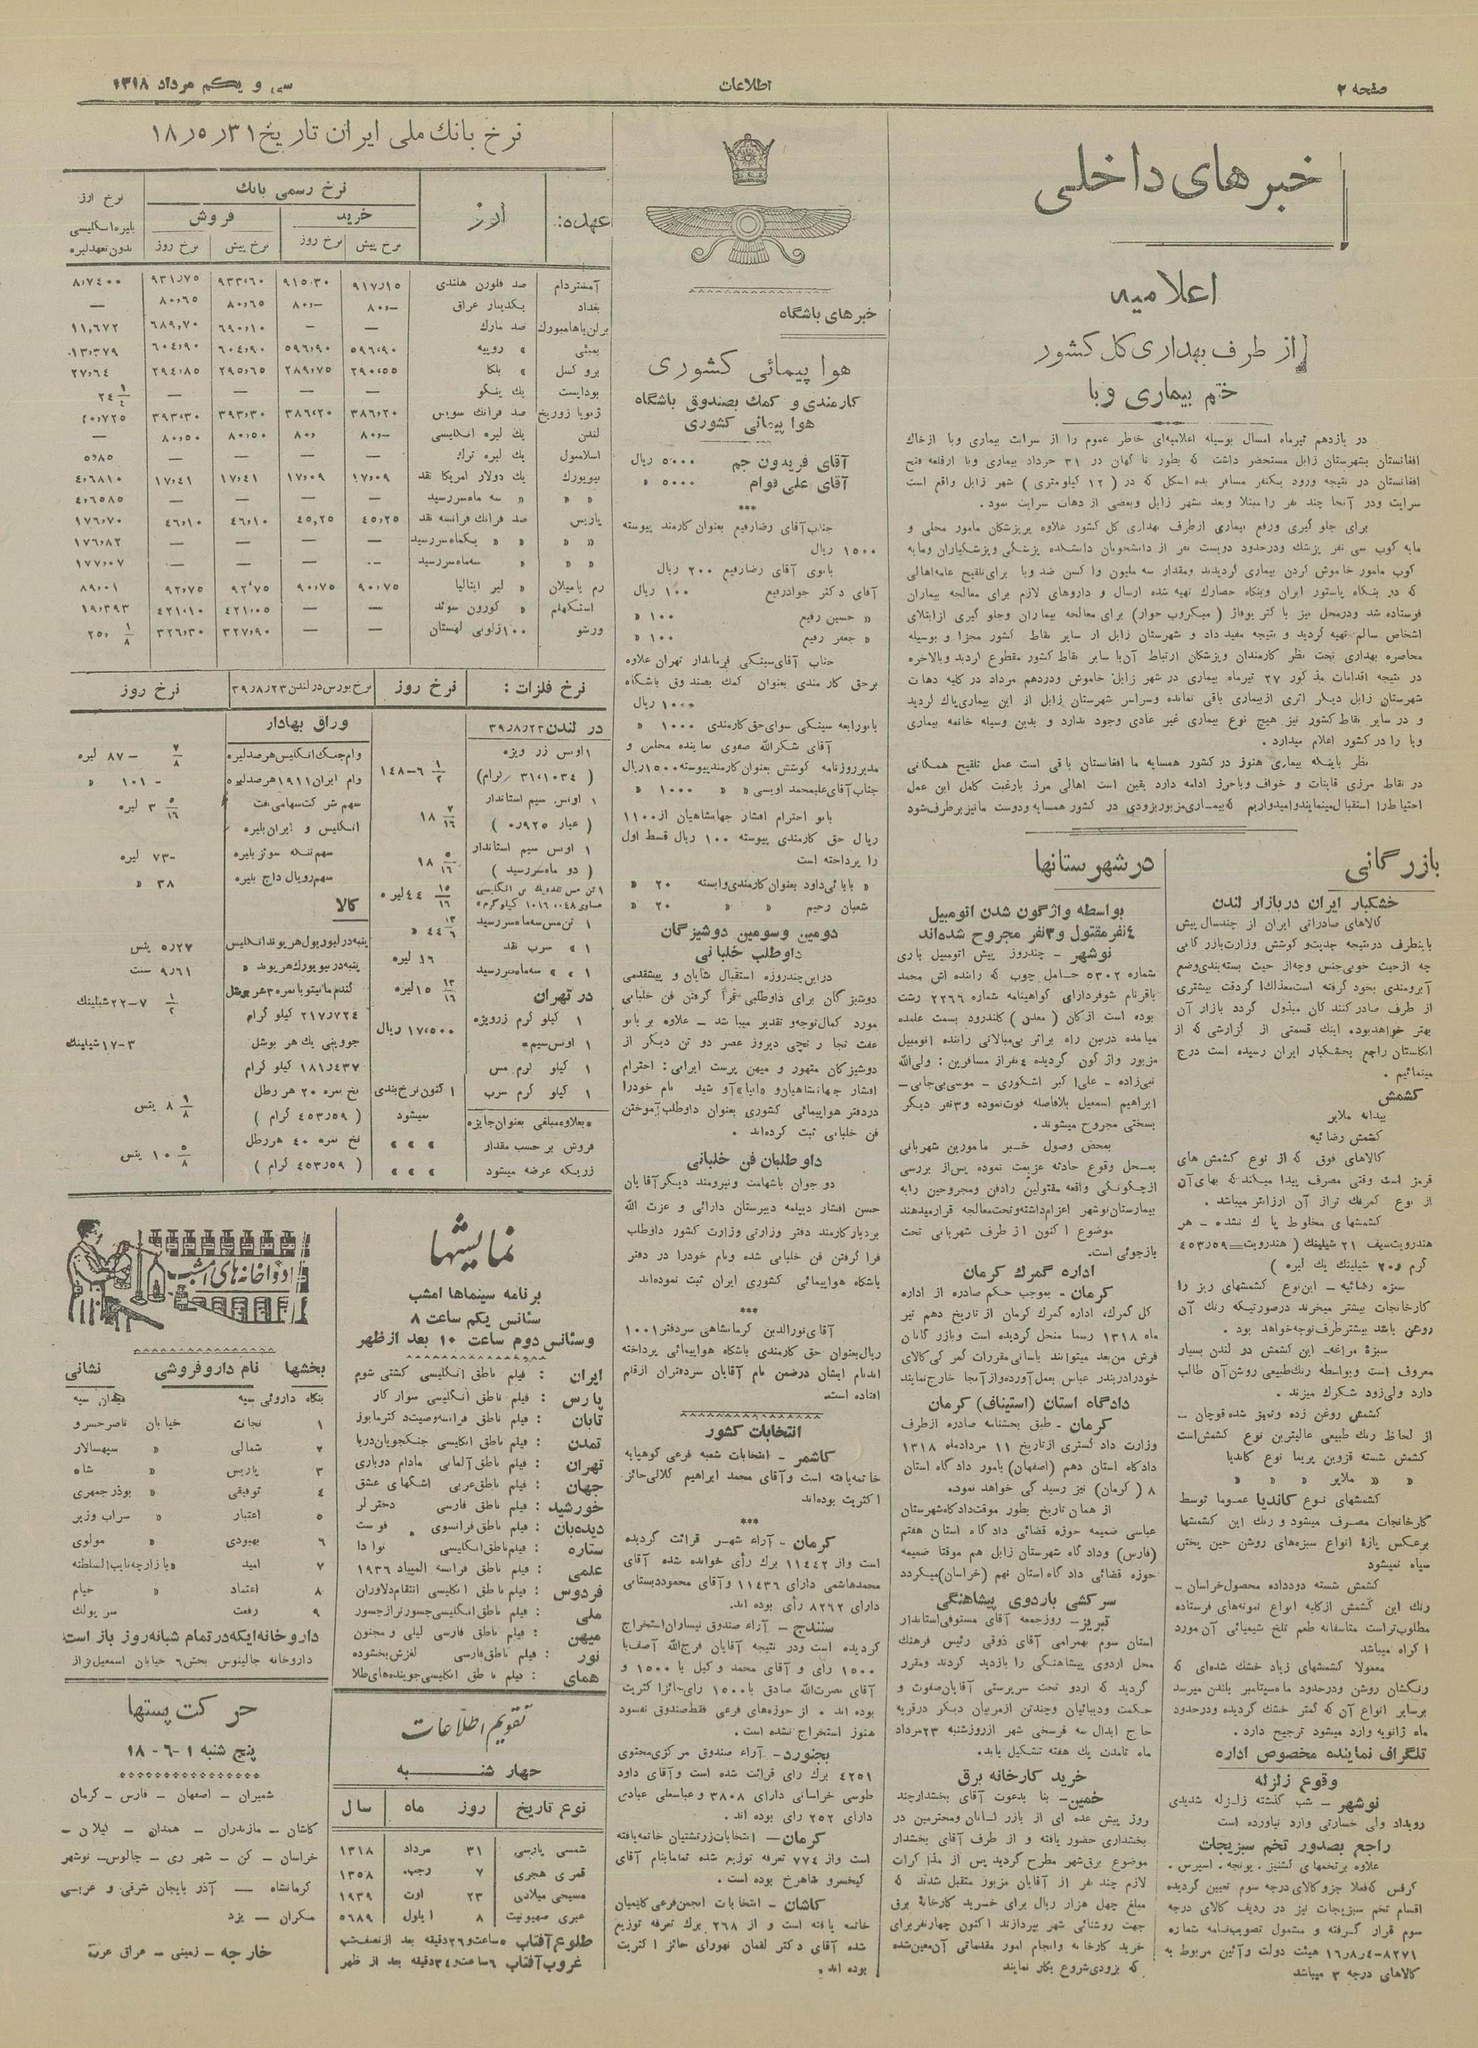 صفحه ۲
اطلاعات
سی و یکم مرداد ۱۳۱۸
خبرهای داخلی
اعلامیه
از طرف بهداری کل کشور
ختم بیماری وبا
در یازدهم تیرماه امسال بوسیله اعلامیه‌ای خاطر عموم را از سرایت بیماری وبا از خاک
افغانستان بشهرستان زابل مستحضر داشت که بطور ناگهان در ۳۱ خرداد بیماری وبا از قلعه فتح
افغانستان در نتیجه ورود یکنفر مسافر بده اسکل که در ( ۱۲ کیلومتری ) شهر زابل واقع است
سرایت ودر آنجا چند نفر را مبتلا وبعد بشهر زابل وبعضی از دهات سرایت نمود .
برای جلو گیری ورفع بیماری ازطرف بهداری کل کشور علاوه بر پزشکان مامور محلی و
مایه کوب سی نفر پزشک ودرحدود دویست نفر از دانشجویان دانشکده پزشکی وپزشکیاران ومایه
کوب مامور خاموش کردن بیماری گردیدند ومقدار سه ملیون واکسن ضد وبا برای تلقیح عامه اهالی
که در بنگاه پاستور ایران وبنگاه حصارک تهیه شده ارسال و داروهای لازم برای معالجه بیماران
فرستاده شد ودرمحل نیز باکتر یوفاژ ( میکروب خوار) برای معالجه بیماران وجلو گیری ازابتلای
اشخاص سالم تهیه گردید و نتیجه مفید داد و شهرستان زابل از سایر نقاط کشور مجزا و بوسیله
محاصره بهداری تحت نظر کارمندان وپزشکان ارتباط آن با سایر نقاط کشور مقطوع گردید وبالاخره
در نتیجه اقدامات مذکور ۲۷ تیرماه بیماری در شهر زابل خاموش ودردهم مرداد در کلیه دهات
شهرستان زابل دیگر اثری ازبیماری باقی نمانده وسراسر شهرستان زابل از این بیماری پاک گردید
و در سایر نقاط کشور نیز هیچ نوع بیماری غیر عادی وجود ندارد و بدین وسیله خاتمه بیماری
وبا را در کشور اعلام میدارد .
نظر باینکه بیماری هنوز در کشور همسایه ما افغانستان باقی است عمل تلقیح همگانی
در نقاط مرزی قاینات و خواف وباخرز ادامه دارد یقین است اهالی مرز بارغبت کامل این عمل
احتیاط را استقبال مینمایند وامیدواریم که بیماری مزبور بزودی در کشور همسایه ودوست مانیز برطرف شود
بازرگانی
خشکبار ایران در بازار لندن
کالاهای صادراتی ایران از چندسال پیش
باینطرف درنتیجه جدیت و کوشش وزارت بازرگانی
چه ازحیث خوبی جنس وچه از حیث بسته بندی وضع
آبرومندی بخود گرفته است معذلک اگر دقت بیشتری
از طرف صادر کنند گان مبذول گردد بازار آن
بهتر خواهد بود . اینک قسمتی از گزارشی که از
انگلستان راجع بخشکبار ایران رسیده است درج
مینمائیم .
کشمش
بیدانه ملایر
کشمش رضائیه
کالاهای فوق که از نوع کشمش های
قرمز است وقتی مصرف پیدا میکند که بهای آن
از نوع کمرنگ تراز آن ارزانتر میباشد .
کشمشهای مخلوط پاک نشده – هر
هندرویت سیف ۲۱ شیلینک ( هندرویت = ۴۵۳٫۵۹
گرم و ۲۰ شیلینک یک لیره )
سبزه رضائیه – این نوع کشمشهای ریز را
کارخانجات بیشتر میخرند درصورتیکه رنک آن
روشن باشد بیشتر طرف توجه خواهد بود .
سبزهٔ مراغه- این کشمش در لندن بسیار
معروف است وبواسطه رنک طبیعی روشن آن طالب
دارد ولی زود شکرک میزند .
کشمش روغن زده وتمیز شده قوچان –
از لحاظ رنک طبیعی عالیترین نوع کشمش است
کشمش شسته قزوین پریما نوع کاندیا
» » ملایر » » »
کشمشهای نوع کاندیا عموما توسط
کارخانجات مصرف میشود و رنک این کشمشها
برعکس پارهٔ انواع سبزه‌های روشن حین پختن
سیاه نمیشود
کشمش شسته دودداده محصول خراسان –
رنک این کشمش ازکلیه انواع نمونه‌های فرستاده
مطلوب تر است متاسفانه طعم تلخ شیمیائی آن مورد
اکراه میباشد
معمولا کشمشهای زیاد خشک شده‌ای که
رنگشان روشن ودرحدود ماه سپتامبر بلندن میرسد
برسایر انواع آن که کمتر خشک گردیده ودرحدود
ماه ژانویه وارد میشود ترجیح دارد .
تلگراف نماینده مخصوص اداره
وقوع زلزله
نوشهر – شب گذشته زلزله شدیدی
رویداد ولی خسارتی وارد نیاورده است
راجع بصدور تخم سبزیجات
علاوه برتخمهای گشنیز . یونجه . اسپرس .
کرفس که فعلا جزو کالای درجه سوم تعیین گردیده
اقسام تخم سبزیجات نیز در ردیف کالای درجه
سوم قرار گرفته و مشمول تصویب نامه شماره
۸۲۷۱–۱۶٫۸٫۴ هیئت دولت وآئین مربوط به
کالاهای درجه ۳ میباشد
در شهرستانها
بواسطه واژگون شدن اتومبیل
۴نفر مقتول و ۳نفر مجروح شده‌اند
نوشهر – چندروز پیش اتومبیل باری
شماره ۵۳۰۲ حامل چوب که راننده اش محمد
باقر نام شوفر دارای گواهینامه شماره ۲۲۶۶ رشت
بوده است از کان ( معدن ) کاندرود بسمت علمده
میامده دربین راه براثر بی مبالاتی راننده اتومبیل
مزبور واژگون گردیده ۴نفر از مسافرین : ولی‌الله
نبی‌زاده – علی اکبر اشکوری – موسی بی‌جانی–
ابراهیم اسمعیل بلافاصله فوت نموده و۳نفر دیگر
بسختی مجروح میشوند.
بمحض وصول خبر مامورین شهربانی
بمحل وقوع حادثه عزیمت نموده پس‌از بررسی
ازچگونگی واقعه مقتولین رادفن ومجروحین را به
بیمارستان نوشهر اعزام داشته وتحت معالجه قرارمیدهند
موضوع اکنون از طرف شهربانی تحت
بازجوئی است.
اداره گمرک کرمان
کرمان – بموجب حکم صادره از اداره
کل گمرک، اداره گمرک کرمان از تاریخ دهم تیر
ماه ۱۳۱۸ رسما منحل گردیده است وبازرگانان
فرش من‌بعد میتوانند باسانی مقررات گمرکی کالای
خودرادر بندر عباس بعمل آورده وازآنجا خارج نمایند
دادگاه استان (استیناف) کرمان
کرمان – طبق بخشنامه صادره از طرف
وزارت دادگستری از تاریخ ۱۱ مردادماه ۱۳۱۸
دادگاه استان دهم (اصفهان) بامور دادگاه استان
۸ (کرمان) نیز رسیدگی خواهد نمود.
از همان تاریخ بطور موقت دادگاه شهرستان
عباسی ضمیمه حوزه قضائی دادگاه استان هفتم
(فارس) ودادگاه شهرستان زابل هم موقتا ضمیمه
حوزه قضائی دادگاه استان نهم (خراسان) میگردد
سرکشی باردوی پیشاهنگی
تبریز – روز جمعه آقای مستوفی استاندار
استان سوم بهمراهی آقای ذوقی رئیس فرهنک
محل اردوی پیشاهنگی را بازدید کردند ومقرر
گردید که اردو تحت سرپرستی آقایان صفوت و
حکمت ودبیائیان وچندتن از مربیان دیگر درقریه
حاج ابدال سه فرسخی شهر ازروز شنبه ۲۳مرداد
ماه تامدت یک هفته تشکیل یابد.
خرید کارخانه برق
خمین – بنا بدعوت آقای بخشدار چند
روز پیش عده ای از بازرگانان ومحترمین در
بخشداری حضور یافته و از طرف آقای بخشدار
موضوع برق شهر مطرح گردید پس از مذاکرات
لازم چند نفر از آقایان مزبور متقبل شدند که
مبلغ چهل هزار ریال برای خرید کارخانهٔ برق
جهت روشنائی شهر بپردازند اکنون چهارنفر برای
خرید کارخانه وانجام امور مقدماتی آن معین شده
که بزودی شروع بکار نمایند
خبرهای باشگاه
هوا پیمائی کشوری
کارمندی و کمک بصندوق باشگاه
هوا پیمائی کشوری
آقای فریدون جم ۵۰۰۰ ریال
آقای علی قوام ۵۰۰۰ »
***
جناب آقای رضا رفیع بعنوان کارمند پیوسته
۱۵۰۰ ریال
بانوی آقای رضا رفیع ۲۰۰ ریال
آقای دکتر جواد رفیع ۱۰۰ ریال
» حسین رفیع ۱۰۰ »
» جعفر رفیع ۱۰۰ »
جناب آقای سینکی فرماندار تهران علاوه
برحق کارمندی بعنوان کمک بصندوق باشگاه
۱۰۰۰ ریال
بانو رابعه سینکی سوای حق کارمندی ۱۰۰۰ »
آقای شکرالله صفوی نماینده مجلس و
مدیر روزنامه کوشش بعنوان کارمند پیوسته ۱۵۰۰ریال
جناب آقای علیمحمد اویسی » » ۱۰۰۰ »
بانو احترام افشار جهانشاهیان از ۱۱۰۰
ریال حق کارمندی پیوسته ۱۰۰ ریال قسط اول
را پرداخته است
» بابائی داود بعنوان کارمندی وابسته ۲۰ »
شعبان رحیم » » ۲۰ »
دومین وسومین دوشیزگان
داوطلب خلبانی
دراین چندروزه استقبال شایان و پیشقدمی
دوشیزگان برای داوطلبی فرا گرفتن فن خلبانی
مورد کمال توجه و تقدیر میباشد – علاوه بر بانو
عفت تجارتچی دیروز عصر دو تن دیگر از
دوشیزگان متهور و میهن پرست ایرانی : احترام
افشار جهانشاهیان و نام خودرا
دردفتر هواپیمائی کشوری بعنوان داوطلب آموختن
فن خلبانی ثبت کرده‌اند .
داوطلبان فن خلبانی
دو جوان باشهامت ونیرومند دیگر آقایان
حسن افشار دیپلمه دبیرستان دارائی و عزت الله
بردبار کارمند دفتر وزارتی وزارت کشور داوطلب
فراگرفتن فن خلبانی شده ونام خودرا در دفتر
باشگاه هواپیمائی کشوری ایران ثبت نموده‌اند
***
آقای نورالدین کرمانشاهی سردفتر ۱۰۰۱
ریال بعنوان حق کارمندی باشگاه هواپیمائی پرداخته
اند نام ایشان درضمن نام آقایان سردفتران ازقلم
افتاده است.
انتخابات کشور
کاشمر – انتخابات شعبه فرعی کوهپایه
خاتمه یافته است وآقای محمد ابراهیم کلالی حائز
اکثریت بوده‌اند
***
کرمان – آراء شهر قرائت گردیده
است واز ۱۱۴۴۲ برک رأی خوانده شده آقای
محمد هاشمی دارای ۱۱۴۳۶ وآقای محمود دبستانی
دارای ۸۲۶۲ رأی بوده اند.
سنندج – آراء صندوق نیساران استخراج
گردیده است ودر نتیجه آقایان فرج‌الله آصف با
۱۵۰۰ رأی و آقای محمد وکیل با ۱۵۰۰ و
آقای نصرت‌الله صادق با ۱۵۰۰ رأی حائز اکثریت
بوده اند . از حوزه‌های فرعی فقط صندوق نفسود
هنوز استخراج نشده است .
بجنورد – آراء صندوق مرکزی محتوی
۴۲۵۱ برک رأی قرائت شده است وآقای داود
طوسی خراسانی دارای ۳۸۰۸ و عباسعلی عبادی
دارای ۲۵۲ رأی بوده اند .
کرمان – انتخابات زرتشتیان خاتمه یافته
است واز ۷۷۴ تعرفه توزیع شده تماما بنام آقای
کیخسرو شاهرخ بوده است .
کاشان – انتخابات انجمن فرعی کلیمیان
خاتمه یافته است و از ۲۶۸ برک تعرفه توزیع
شده آقای دکتر لقمان نهورای حائز اکثریت
بوده اند .
نرخ بانک ملی ایران تاریخ ۳۱٫۵٫۱۸
عهده: ارز نرخ رسمی بانک نرخ ارز
خرید فروش بلیره انگلیسی
نرخ پیش نرخ روز نرخ پیش نرخ روز بدون تعهد لیره
آمستردام صد فلورن هلندی ۹۱۷٫۱۵ ۹۱۵٫۳۰ ۹۳۳٫۶۰ ۹۳۱٫۷۵ ۸٫۷۴۰۰
بغداد یکدینار عراق ۸۰٫– ۸۰٫– ۸۰٫۶۵ ۸۰٫۶۵ —
برلن یا هامبورک صد مارک — — ۶۹۰٫۱۰ ۶۸۹٫۷۰ ۱۱٫۶۷۲
بمبئی » روپیه ۵۹۶٫۹۰ ۵۹۶٫۹۰ ۶۰۴٫۹۰ ۶۰۴٫۹۰
بروکسل » بلکا ۲۹۰٫۵۵ ۲۸۹٫۷۵ ۲۹۵٫۶۵ ۲۹۴٫۸۵ ۲۷٫۶۴
بوداپست یک پنگو ۲۴ ۱/۴
ژنو یا زوریخ صد فرانک سویس ۳۸۶٫۲۰ ۳۸۶٫۲۰ ۳۹۳٫۳۰ ۳۹۳٫۳۰ ۲۰٫۷۲۵
لندن یک لیره انگلیسی ۸۰٫– ۸۰٫ ۸۰٫۵۰ ۸۰٫۵۰ —
اسلامبول یک لیره ترک — — — — ۵٫۸۵
نیویورک یک دولار امریکا نقد ۱۷٫۰۹ ۱۷٫۰۹ ۱۷٫۴۱ ۱۷٫۴۱ ۴٫۶۸۱۰
» » » سه ماه سررسید — — — — ۴٫۶۵۸۵
پاریس صد فرانک فرانسه نقد ۴۵٫۲۵ ۴۵٫۲۵ ۴۶٫۱۰ ۴۶٫۱۰ ۱۷۶٫۷۰
» » » یکماه سررسید — — — — ۱۷۶٫۸۲
» » سه‌ماه سررسید — — — — ۱۷۷٫۰۷
رم یا میلان » لیر ایتالیا ۹۰٫۷۵ ۹۰٫۷۵ ۹۲٫۷۵ ۹۲٫۷۵ ۸۹٫۰۱
استکهلم » کورون سوئد — — ۴۲۱٫۰۵ ۴۲۱٫۱۰ ۱۹٫۳۹۳
ورشو ۱۰۰زلوتی لهستان — — ۳۲۷٫۹۰ ۳۲۶٫۳۰ ۲۵٫ ۱/۸
نرخ فلزات : نرخ روز
در لندن ۳۹٫۸٫۲۳
۱ اونس زر ویژه
( ۳۱٫۱۰۳۴ گرام ) ۱۴۸–۶ ۱/۲
۱ اونس سیم استاندار
( عیار ۰٫۹۲۵ ) ۱۸ ۷/۱۶
۱ اونس سیم استاندار
( دو ماه سررسید ) ۱۸ ۵/۱۶
۱ تن مس نقد یک تن انگلیسی
مساوی ۱۰۱۶٫۰۴۸ کیلو گرم » ۴۴ ۱۵/۱۶ لیره
۱ تن مس سه ماه سررسید ۴۴ »
۱ » سرب نقد ۱۶ لیره
۱ » » سه ماه سررسید ۱۵ ۱۳/۱۶ لیره
در تهران
۱ کیلو گرم زر ویژه ۱۷٫۵۰۰ ریال
۱ اونس سیم*
۱ کیلو گرم مس
۱ کیلو گرم سرب
اکنون نرخ بندی
نمیشود
* بعلاوه مبلغی بعنوان جایزه
فروش برحسب مقدار
زریکه عرضه میشود
نرخ بورس در لندن ۳۹٫۸٫۲۳ نرخ روز
اوراق بهادار
وام جنک انگلیس هرصد لیره ۸۷– ۷/۸ لیره
وام ایران ۱۹۱۱ هرصد لیره ۱۰۱– »
سهم شرکت سهامی نفت
انگلیس و ایران بلیره ۳ ۵/۱۶ لیره
سهم تنگه سوئز بلیره ۷۳– لیره
سهم رویال داچ بلیره ۳۸ »
کالا
پنبه در لیورپول هر پوند انگلیس ۵٫۲۷ پنس
پنبه در نیویورک هر پوند » ۹٫۶۱ سنت
گندم مانیتوبا نمره ۳ هر بوشل
۲۱۷٫۷۲۴ کیلو گرام ۲۲–۷ ۱/۲ شیلینک
جو وینی یک هر بوشل
۱۸۱٫۴۳۷ کیلو گرام ۱۷–۳ شیلینک
نخ نمره ۲۰ هر رطل
( ۴۵۳٫۵۹ گرام ) ۸ ۱/۸ پنس
نخ نمره ۴۰ هر رطل
( ۴۵۳٫۵۹ گرام ) ۱۰ ۵/۸ پنس
نمایشها
برنامه سینماها امشب
سئانس یکم ساعت ۸
وسئانس دوم ساعت ۱۰ بعد ازظهر
ایران : فیلم ناطق انگلیسی کشتی شوم
پارس : فیلم ناطق انگلیسی سوار کار
تابان : فیلم ناطق فرانسه وصیت دکتر مابوز
تمدن : فیلم ناطق انگلیسی جنگجویان دریا
تهران : فیلم ناطق آلمانی مادام دوباری
جهان : فیلم ناطق عربی اشکهای عشق
خورشید : فیلم ناطق فارسی دختر لر
دیده‌بان : فیلم ناطق فرانسوی فوست
ستاره : فیلم ناطق انگلیسی نوادا
علمی : فیلم ناطق فرانسه المپیاد ۱۹۳۶
فردوس : فیلم ناطق انگلیسی انتقام دلاوران
ملی : فیلم ناطق انگلیسی جسورتر از جسور
میهن : فیلم ناطق فارسی لیلی و مجنون
نور : فیلم ناطق فارسی لغزش بخشوده
همای : فیلم ناطق انگلیسی جوینده‌های طلا
تقویم اطلاعات
چهار شنبه
نوع تاریخ روز ماه سال
شمسی پارسی ۳۱ مرداد ۱۳۱۸
قمری هجری ۷ رجب ۱۳۵۸
مسیحی میلادی ۲۳ اوت ۱۹۳۹
عبری صهیونیت ۸ ایلول ۵۶۸۹
طلوع آفتاب ۵ساعت و۲۶دقیقه بعد از نصف شب
غروب آفتاب ۶ساعت و۳۴دقیقه بعد از ظهر
دواخانه‌های امشب
بخشها نام داروفروشی نشانی
بنگاه داروئی سپه میدان سپه
۱ نجات خیابان ناصرخسرو
۲ شمالی » سپهسالار
۳ پاریس » شاه
۴ توفیقی » بوذرجمهری
۵ اعتبار » سراب وزیر
۶ بهبودی » مولوی
۷ امید » بازارچه نایب السلطنه
۸ اعتماد » خیام
۹ رفعت سرپولک
داروخانه ایکه در تمام شبانه روز باز است:
داروخانه جالینوس بخش ۶ خیابان اسمعیل بزاز
حرکت پستها
پنج شنبه ۱-۶-۱۸
شمیران – اصفهان – فارس – کرمان
کاشان – مازندران – همدان – گیلان –
خراسان – کن – شهر ری – چالوس – نوشهر
کرمانشاه — آذربایجان شرقی و غربی
مکران – یزد
خارجه – زمینی – عراق عرب